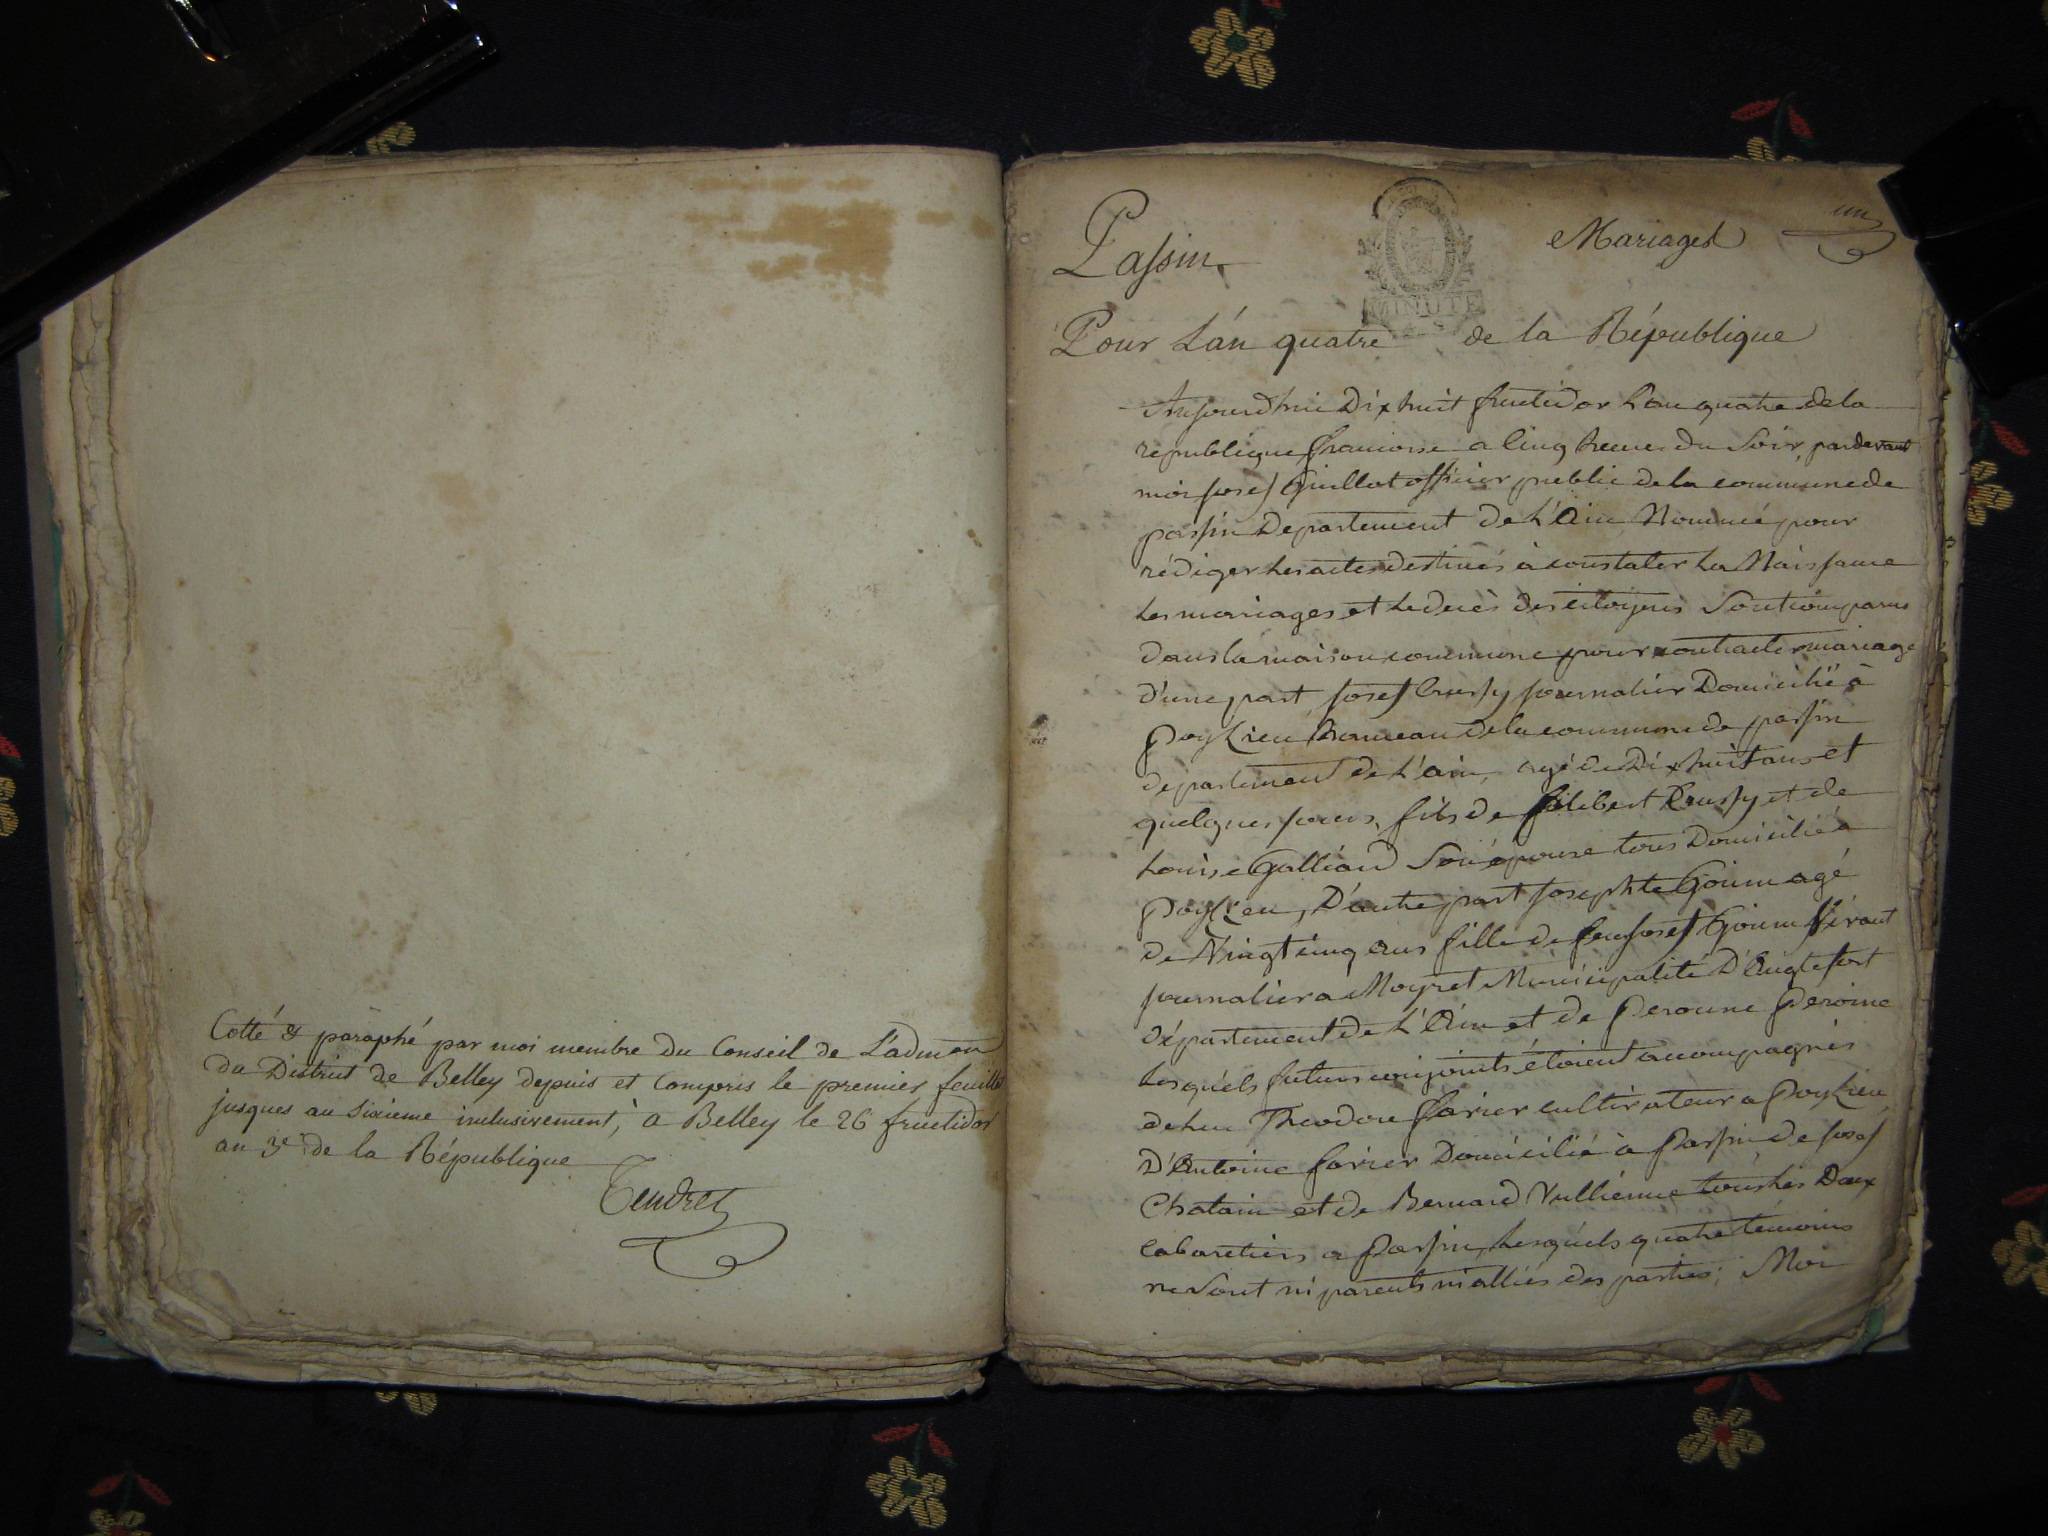 Cotté & paraphé par moi membre du Conseil de L'admon
du District de Belley depuis et Compris le premier feuillet
jusques au Sixieme inclusivement, a Belley le 26 fructidor
an 3e de la République
Tendret
un
Passin
Mariages
MINUTE
Pour L'an quatre de la République
Aujourdhui Dixhuit fructidor L'an quatre de la
république francoise a Cinq heures du Soir, pardevant
moi Josef Guillot officier public de la commune de
passin Departement de L'Ain Nommé pour
rédiger Les actes destinés à constater La Naissance
Les mariages et Le decès des citoyens Sont comparus
dans la maison commune pour contracter mariage
d'une part Josef Crussy journalier Domicilié à
Poylieu hameau de la commune de passin
departement de L'ain, agé de Dixhuit ans et
quelques jours, fils de filibert Crussy et de
Louise Galliand Son épouse tous Domicilié à
Poylieu, D'autre part Josephte Goim agé
de Vingt cinq ans fille de feu Josef Goim Vivant
journalier a Moyret Municipalité D'Anglefort
Département de L'Ain et de Peronne Peroine
Lesquels futurs conjoints étoient accompagnés
de Théodore favier cultivateur a Poylieu,
D'Antoine favier Domicilié à Passin, de Josef
Chatain et de Bernard Vullienne tous Les Deux
Cabaretiers a Passin, Lesquels quatre temoins
ne Sont ni parents ni alliés des parties; Moi